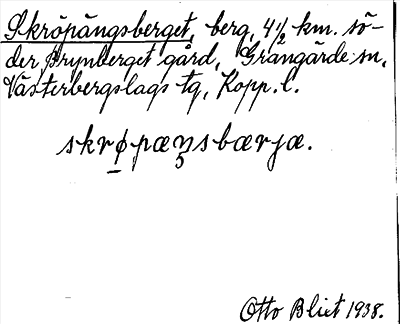 Skröpängsberget, berg, 4 1/2 km. sö-
der Brynberget gård, Grängärde sn,
Västerbergslags tg, Kopp. l.
skrø̠pæŋsbærjæ.
Otto Blixt 1938.